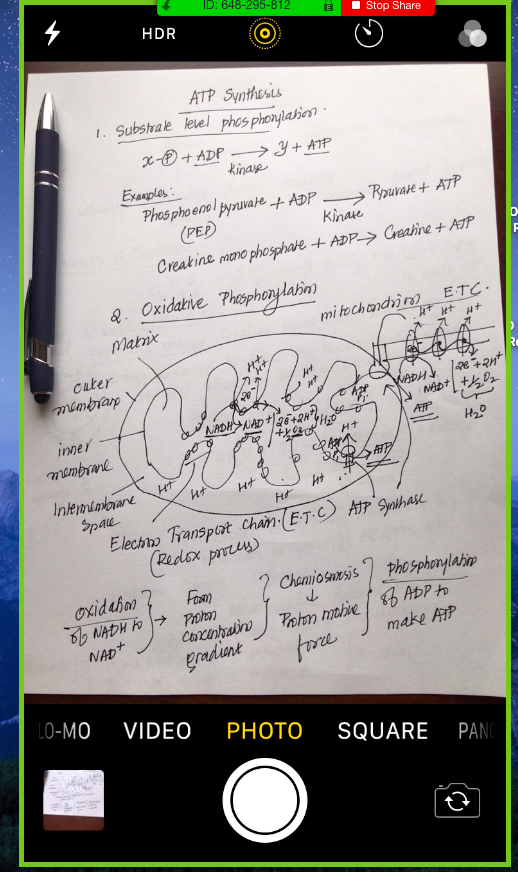 ID: 648-295-812
Stop Share
HDR
ATP Synthesis
1. Substrate level phosphorylation.
x-Ⓟ + ADP → y + ATP
kinase
Examples:
Phosphoenol pyruvate + ADP → Pyruvate + ATP
(PEP)
Kinase
Creatine monophosphate + ADP → Creatine + ATP
2. Oxidative Phosphorylation
mitochondrion
E.T.C.
Matrix
H+ H+ H+
outer
membrane
inner
membrane
Intermembrane
Space
H+
H+
2e-
H+
H+
ADP
Pi
NADH → NAD+
2e- + 2H+
+ 1/2 O2
H2O
H+
ADP
Pi
ATP
2e-
NADH
NAD+
ATP
2e- + 2H+
+ 1/2 O2
H2O
H+ H+ H+ H+ H+ H+
Electron Transport Chain. (E.T.C)
ATP Synthase
(Redox process)
oxidation
of NADH to
NAD+
→
Form
Proton
concentration
gradient
Chemiosmosis
↓
Proton motive
force
phosphorylation
of ADP to
make ATP
LO-MO VIDEO PHOTO SQUARE PANO